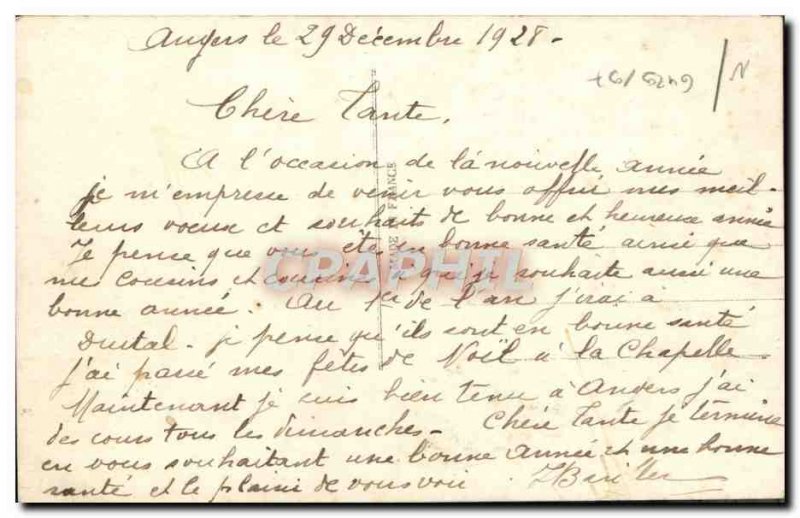 Angers le 29 Décembre 1928 -
6429/91
N
Chère Tante,
A l'occasion de la nouvelle année
je m'empresse de venir vous offrir mes meil-
leurs voeux et souhaits de bonne et heureuse année
Je pense que vous êtes en bonne santé ainsi que
mes cousins et cousines à qui je souhaite aussi une
bonne année. Au 1er de l'an j'irai à
Durtal - je pense qu'ils sont en bonne santé
j'ai passé mes fêtes de Noël à la Chapelle -
Maintenant je suis bien tenu à Angers j'ai
des cours tous les dimanches - Chère Tante je termine
en vous souhaitant une bonne année et une bonne
santé et le plaisir de vous voir.
MADE FRANCE
CPARPHIL